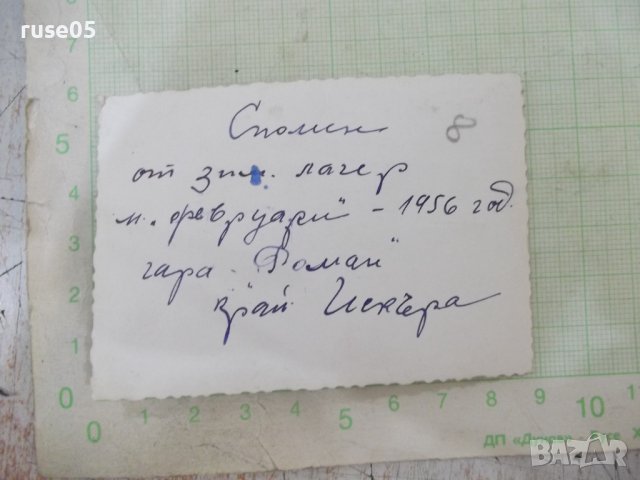 ruse05
Спомен
8
от зим. лагер
м. февруари" - 1956 год.
гара "Роман"
край Искъра
6
5
4
3
2
1
0
0 1 2 3 4 5 6 7 8 9 10
ДП
BAZAR
bg